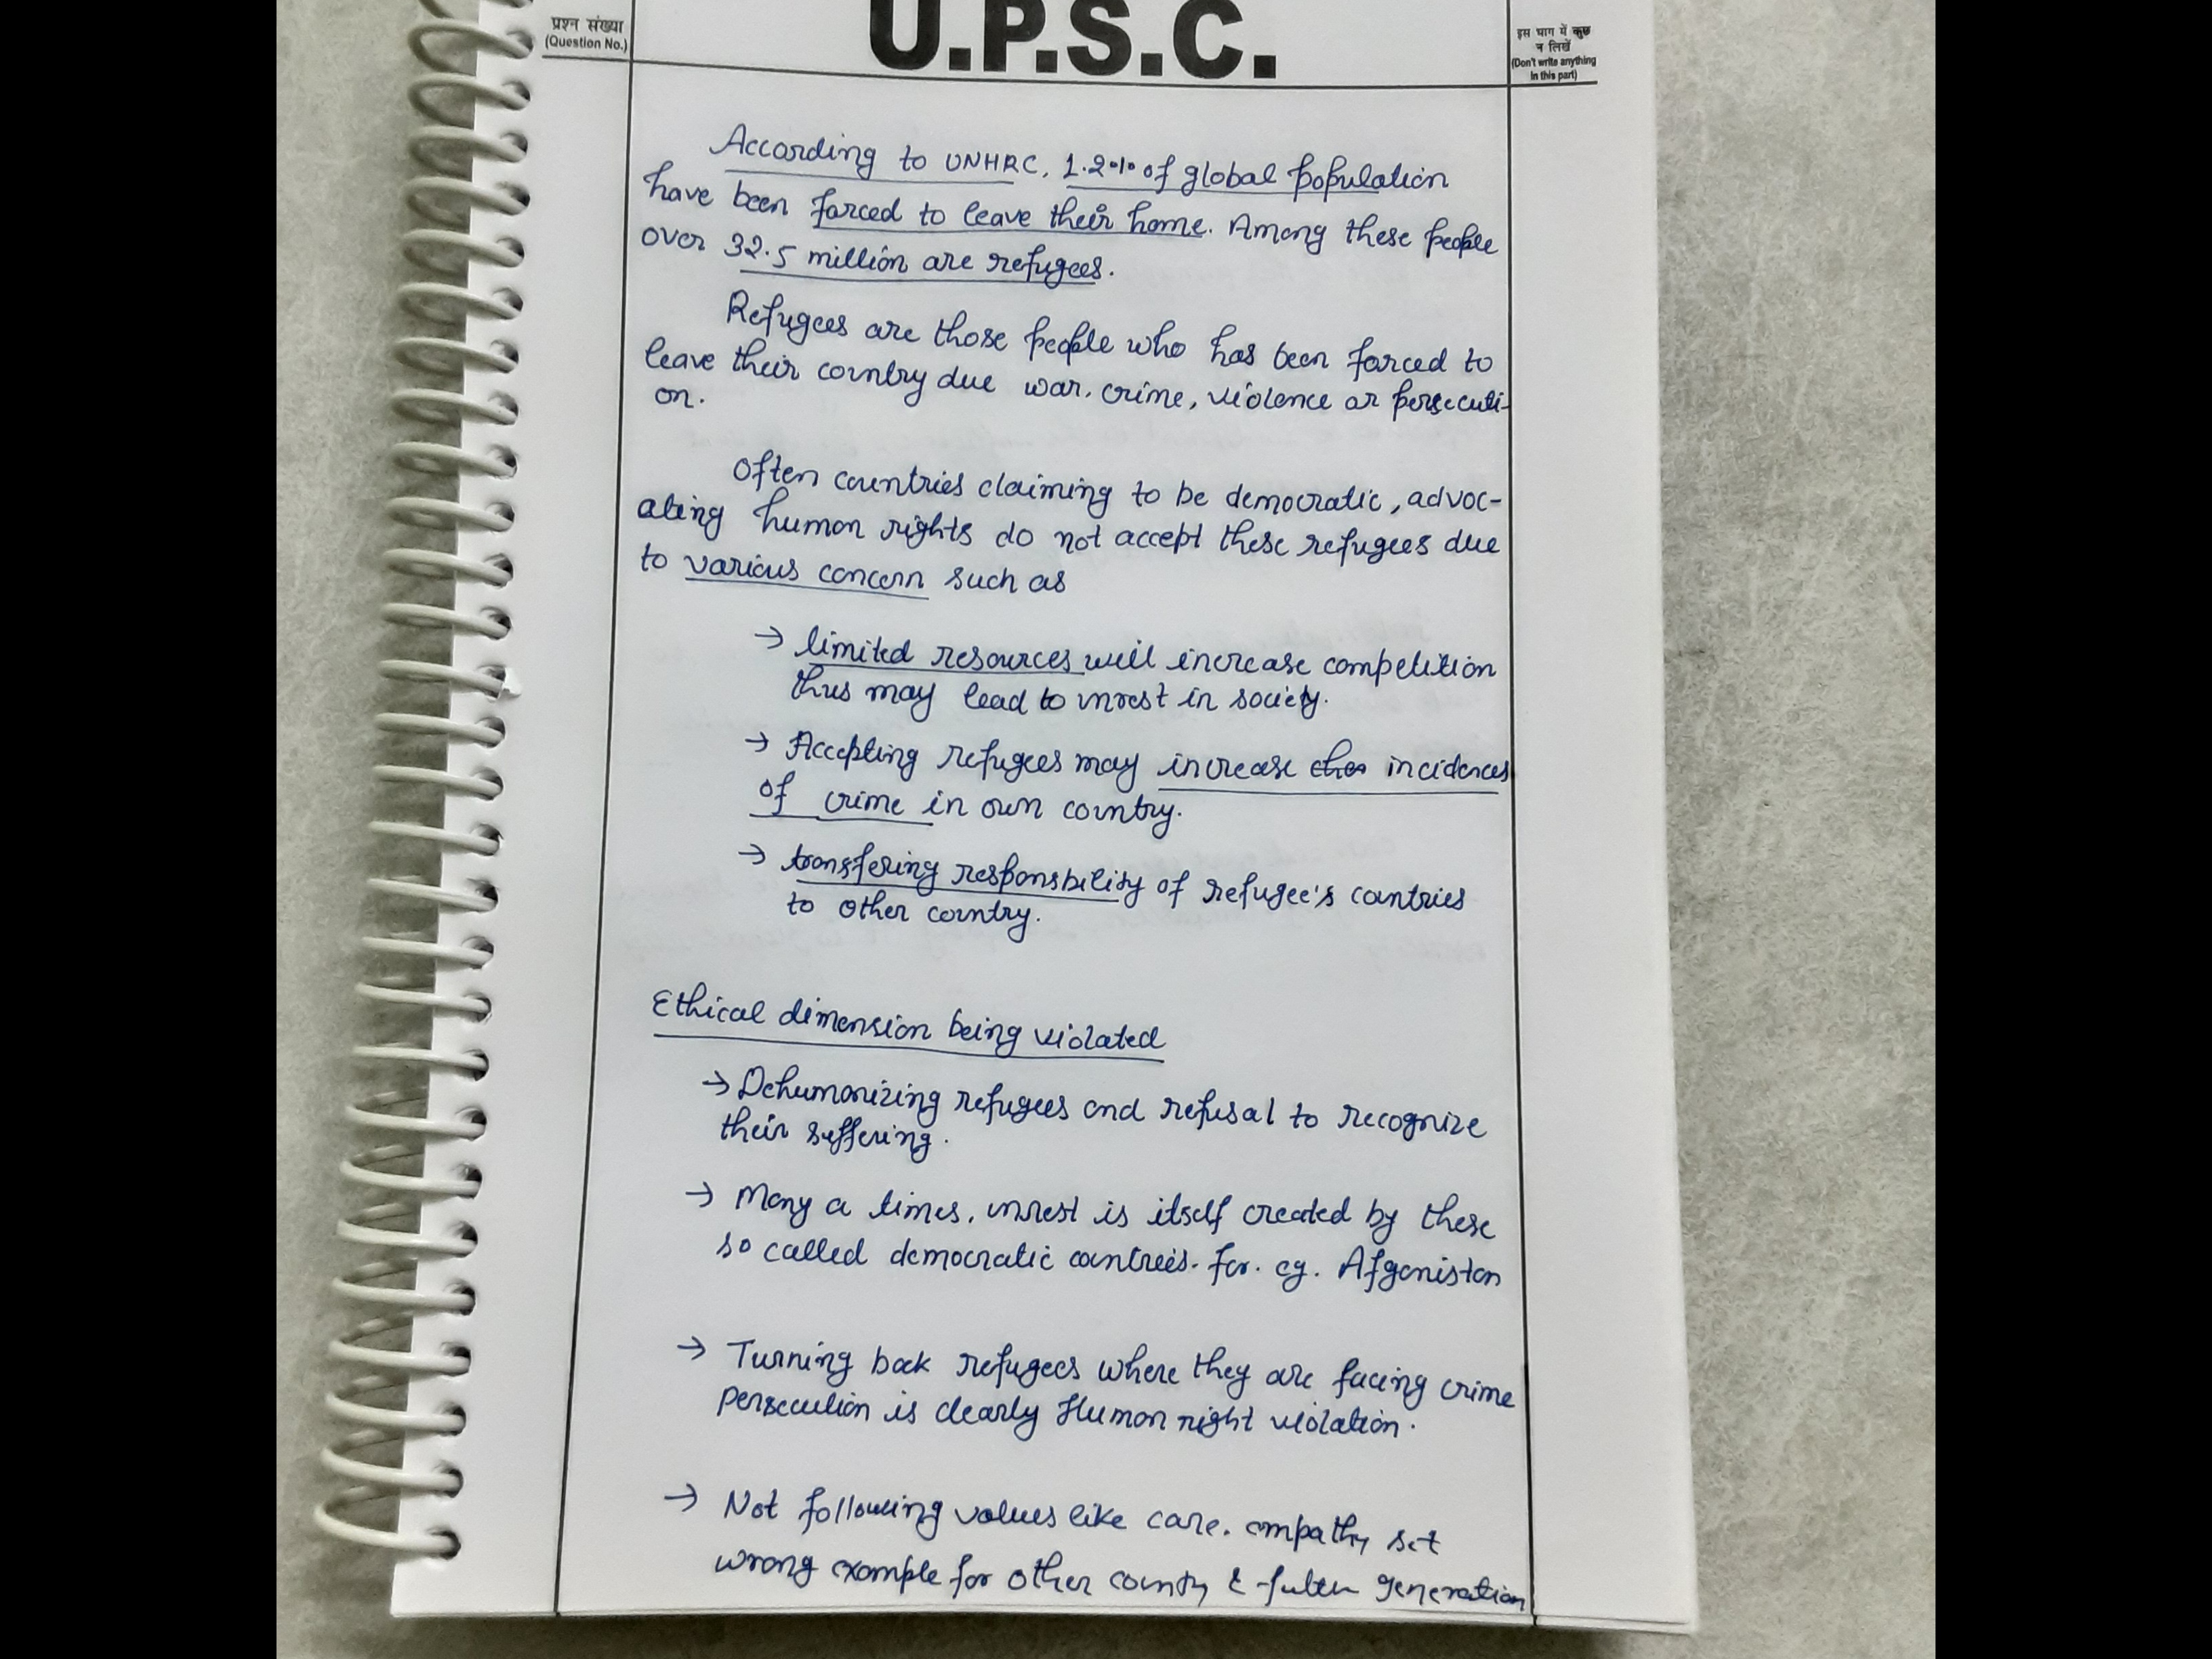 प्रश्न संख्या
(Question No.)
U.P.S.C.
इस भाग में कुछ
न लिखें
(Don't write anything
in this part)
According to UNHRC, 1.2% of global population
have been forced to leave their home. Among these people
over 32.5 million are refugees.
Refugees are those people who has been forced to
leave their country due war, crime, violence or persecuti-
on.
Often countries claiming to be democratic, advoc-
ating human rights do not accept these refugees due
to various concern such as
→ limited resources will increase competition
thus may lead to unrest in society.
→ Accepting refugees may increase incidences
of crime in own country.
→ transfering responsbility of refugee's countries
to other country.
Ethical dimension being violated
→ Dehumanizing refugees and refusal to recognize
their suffering.
→ Many a times, unrest is itself created by these
so called democratic countries. for. eg. Afganistan
→ Turning back refugees where they are facing crime
persecution is clearly Human right violation.
→ Not following values like care, empathy set
wrong example for other county & generation